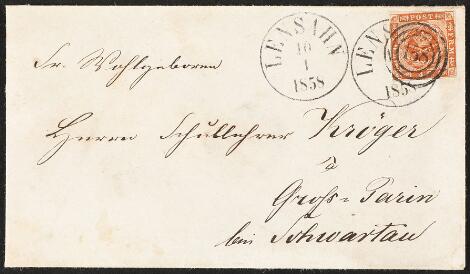 LENSAHN
10
1
1858
LENSA
1858
POST
FRM
Sr. Wohlgeboren
Herrn Schullehrer Kröger
a
Gross-Parin
bei Schwartau